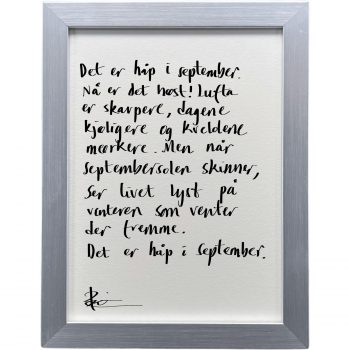 Det er håp i september.
Nå er det høst! Lufta
er skarpere, dagene
kjøligere og kveldene
mørkere. Men når
septembersolen skinner,
ser livet lyst på
vinteren som venter
der fremme.
Det er håp i september.